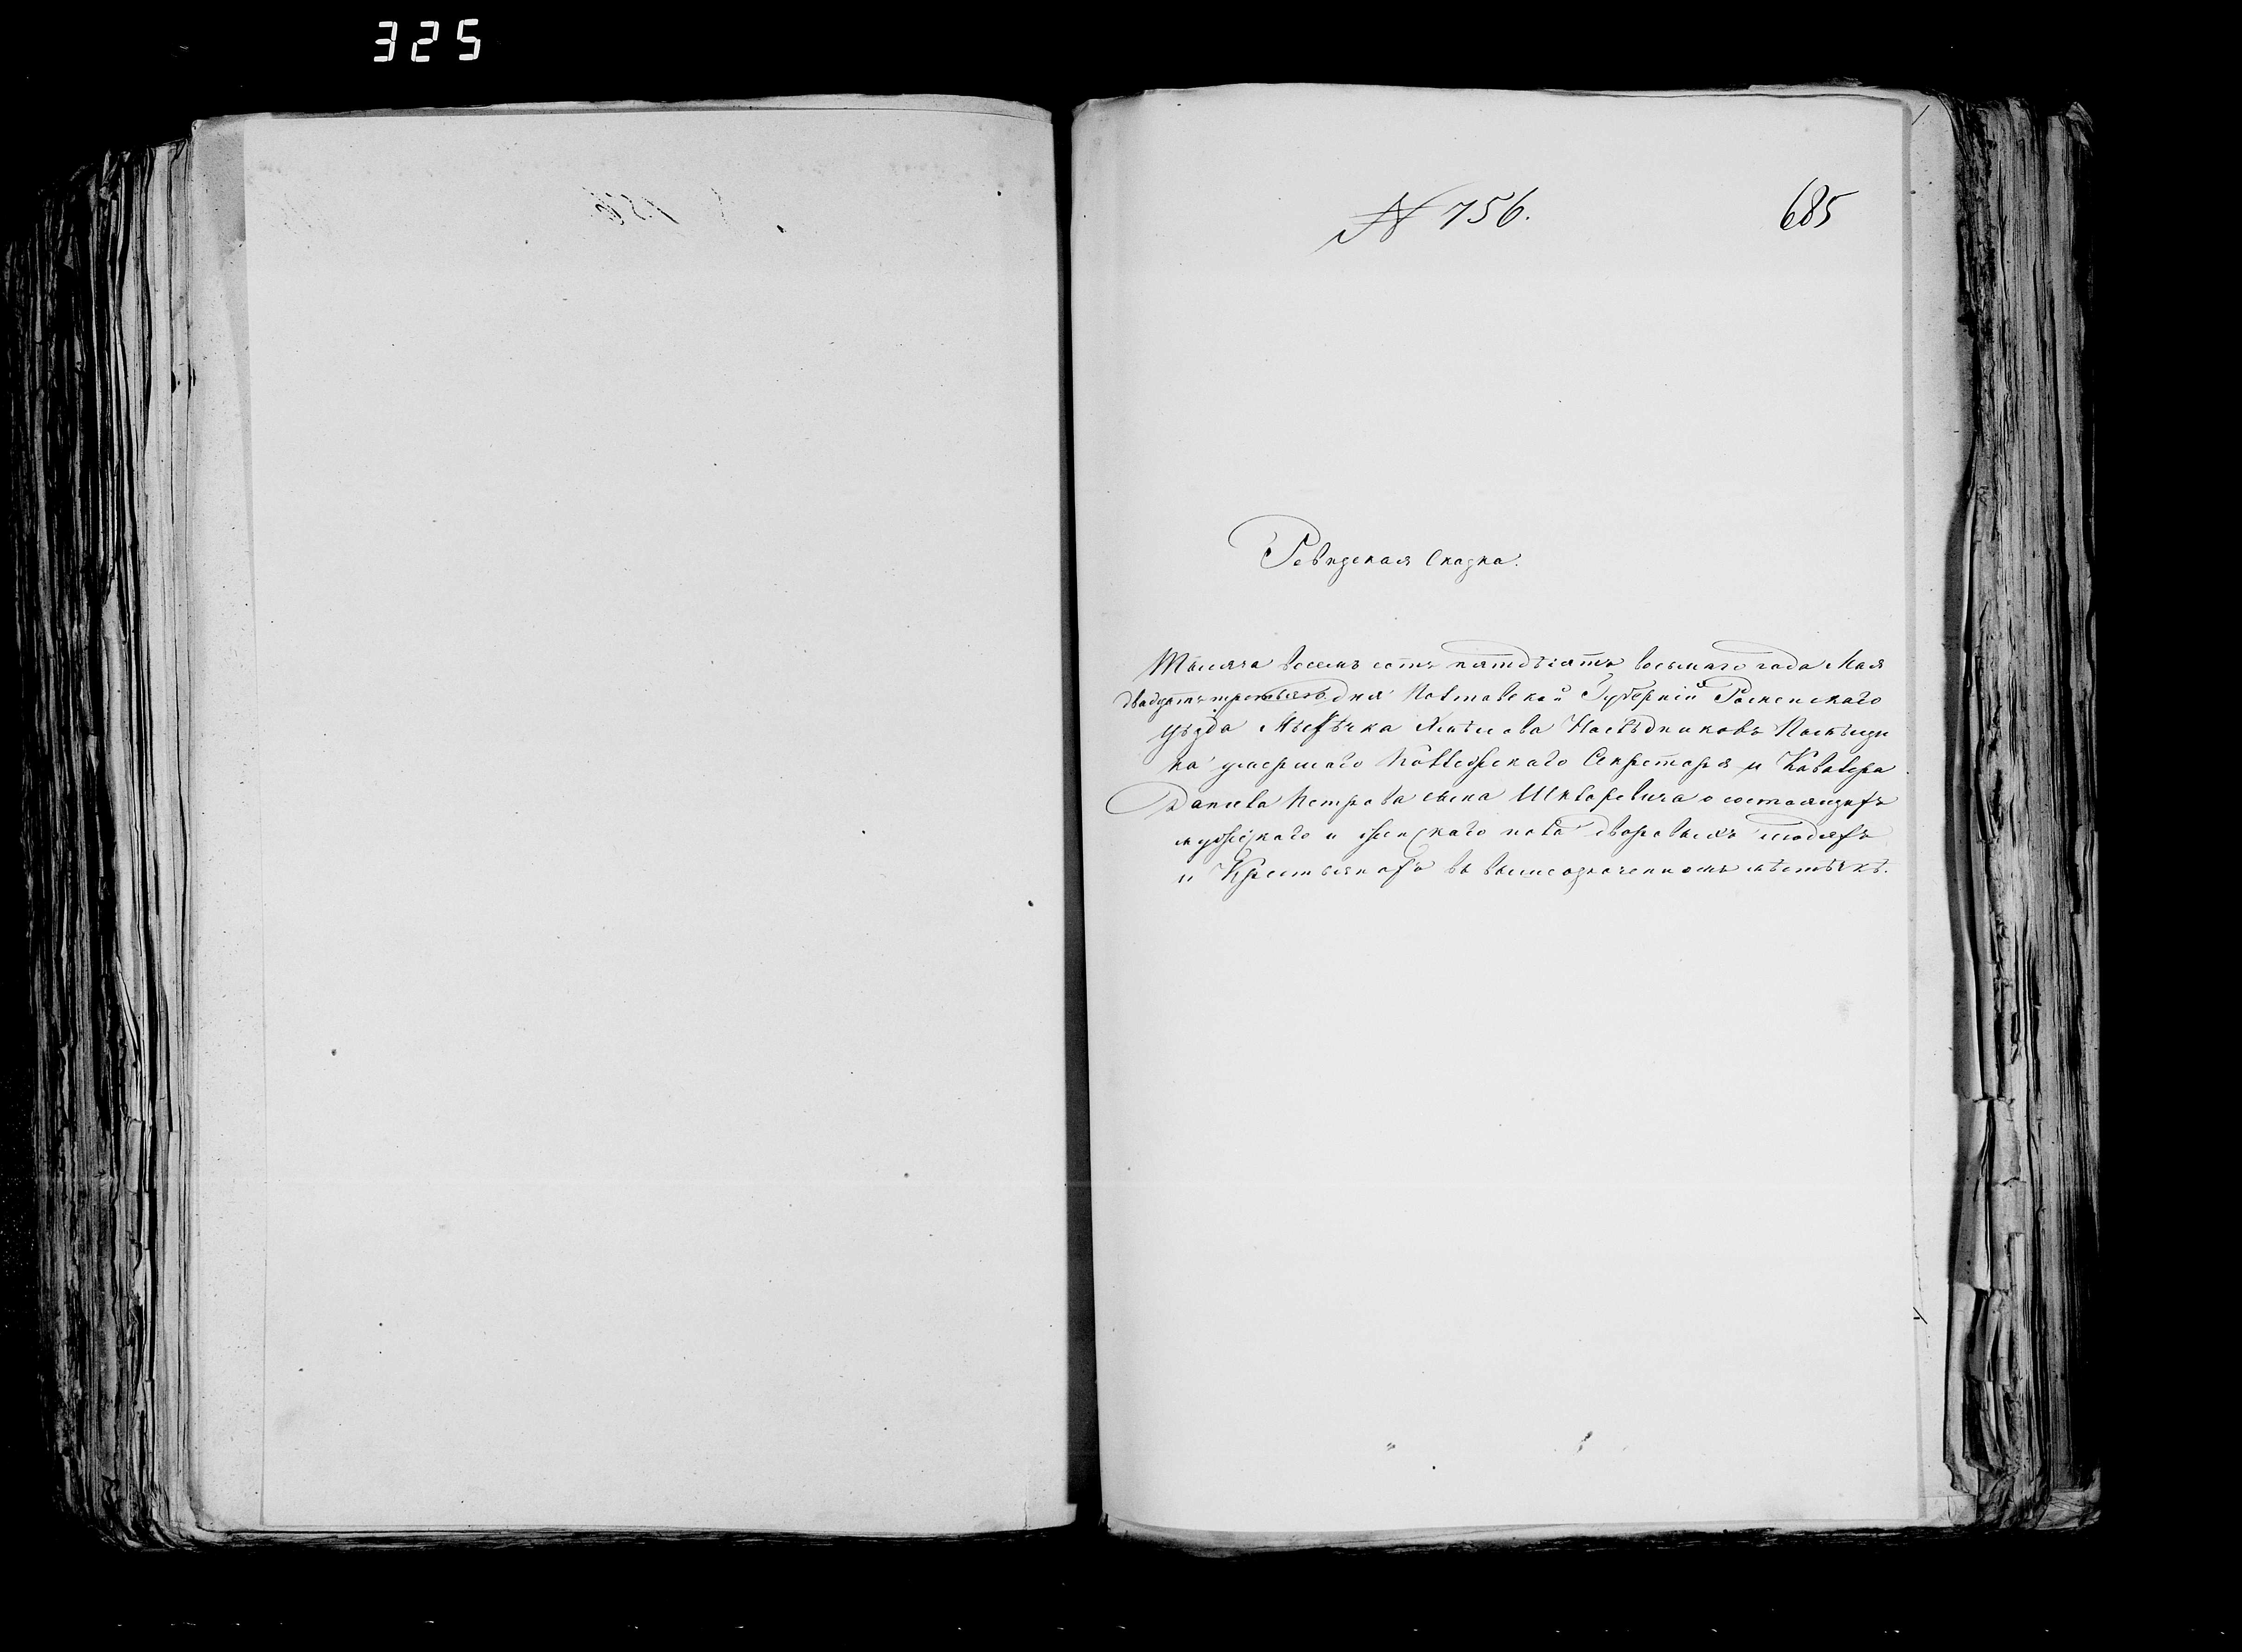 325
№ 756.
685
Ревизская Сказка.
Тысяча восемъ сотъ пятдесятъ восьмаго года Мая
двадцать третьяго дня Полтавской Губерніи Роменскаго
уѣзда Мѣстѣчка Наслѣдниковъ Помѣщи
ка умершаго Коллежскаго Секретаря и Кавалера
Данила Петрова сына Шкляревича о состоящихъ
мужескаго и женскаго пола дворовыхъ людяхъ
и Крестьянахъ въ вышеозначенномъ мѣстѣчкѣ.